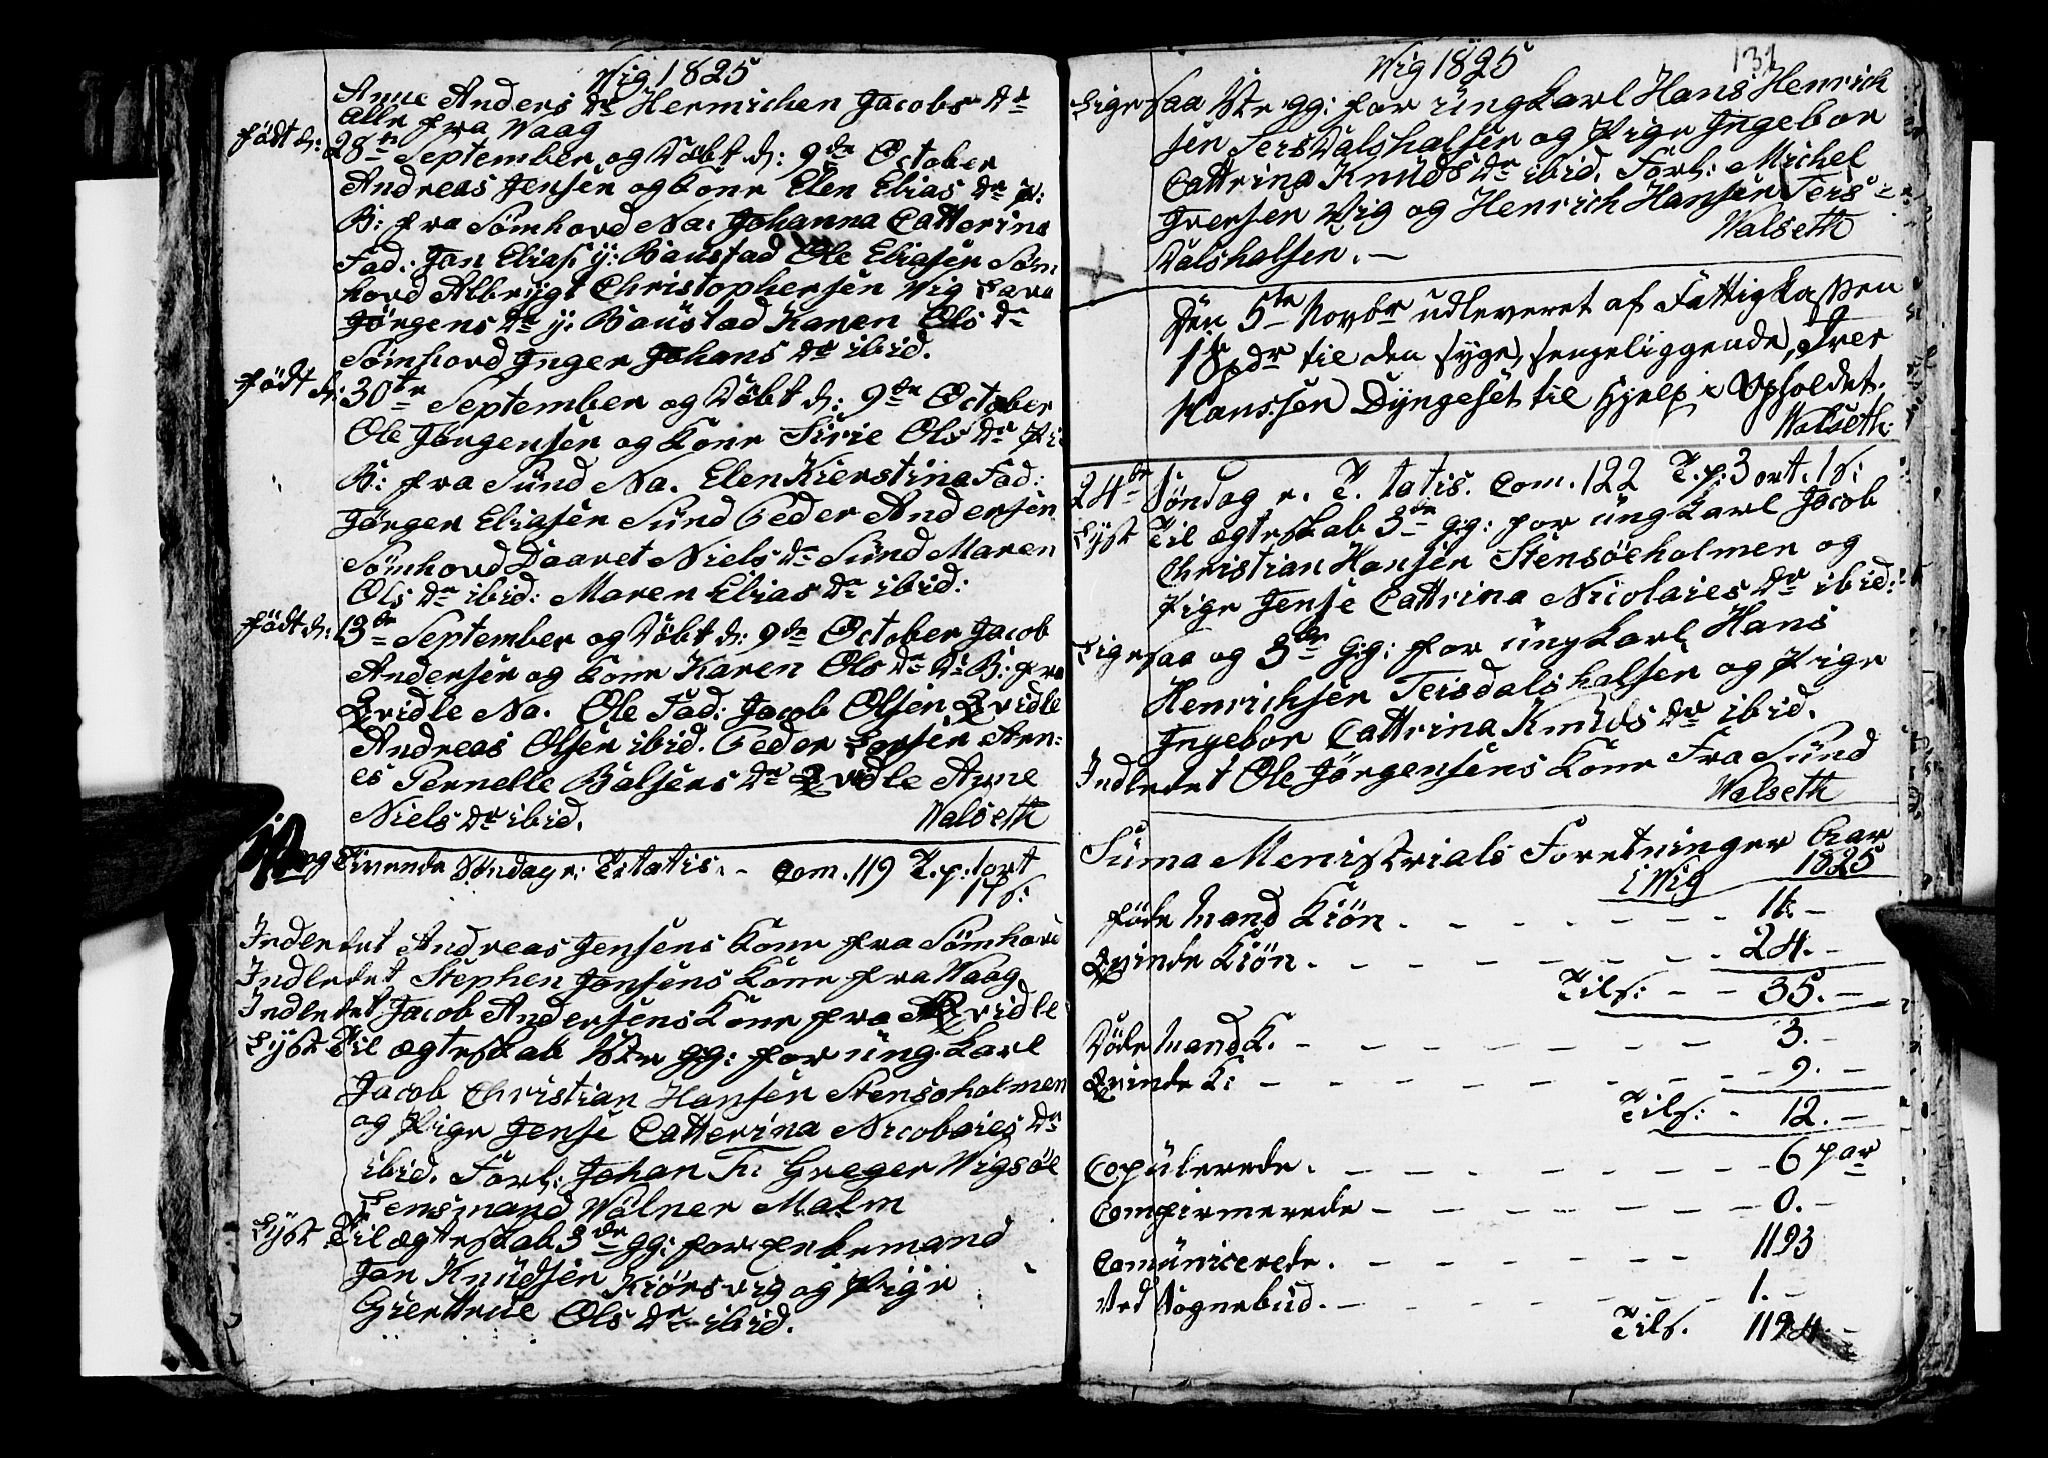 Wig 1825
Anne Anders Dr Hermichen Jacobs Dr
Alle fra Waag
født d: 28de September og Døbt d: 9de October
Andreas Jensen og Kone Elen Elias Dr P:
B: fra Sömhovd Na. Johanna Catterina
Fad: Jan Elias: y: Baustad Ole Eliasen Söm
hovd Albrigt Christophersen Wig Sara
Jörgens Dr y: Baustad Karen Ols Dr
Sömhovd Inger Johans Dr ibid.
født d: 30te September og Døbt d: 9de October
Ole Jörgensen og Kone Sirie Ols Dr Pi
B: fra Sund Na. Elen Kierstina Fad:
Jörgen Eliasen Sund Peder Andersen
Sömhovd Daaret Niels Dr Sund Maren
Ols Dr ibid: Maren Elias Dr ibid:
født d: 13de September og Døbt d: 9de October Jacob
Andersen og Kone Karen Ols Dr Ds B: fra
Qvidle Na. Ole Fad: Jacob Olsen Qvidle
Andreas Olsen ibid. Peder Larsen Arn-
es Pernelle Balsers Dr Qvidle Anne
Niels Dr ibid. Walseth
og Tivende Söndag e: T:tatis. - Com. 119 T. p: 1 ort
17 s:
Indledet Andreas Jensens Kone fra Sömhovd
Indledet Stephen Jensens Kone fra Waag
Indledet Jacob Andersens Kone fra Qvidle
Lyst Til ægteskab 1ste gg: for ung Karl
Jacob Christian Hansen Stensøholmen
og Pige Jense Catterina Nicolaies Dr
ibid. Forl: Johan Fr: Greger Wigsøe
Lensmand Wölner Malm
Lyst Til ægteskab 3de gg: for Enkemand
Jon Knudsen Kiörsvig og Pige
Giertrue Ols Dr ibid.
Wig 1825 131
Ligesaa 1ste gg: for ung Karl Hans Henrich
sen Teisdalshalsen og Pige Ingebor
Cattrina Knuds Dr ibid. Forl: Michel
Iversen Wig og Henrich Hansen Teis-
dalshalsen. - Walseth
Den 5te Novbr udleveret af Fattigkassen
1 Spdr til den syge, sengeliggende, Iver
Hanssen Dyngeset til Hjelp i Opholdet.
Walseth
24de Söndag e. T. tatis. Com. 122 T. p: 3 ort. 1 s:
Lyst Til ægteskab 3de gg: for ung Karl Jacob
Christian Hansen Stensøeholmen og
Pige Jense Cattrina Nicolaies Dr ibid:
Ligesaa og 3de gg: for ung Karl Hans
Henrichsen Teisdalshalsen og Pige
Ingebor Cattrina Knuds Dr ibid.
Indledet Ole Jörgensens Kone Fra Sund
Walseth
Suma Menistrials Foretninger Aar
i Wig 1825
føde Mand Kiön. - - - - - - 11. -
Qvinde Kiön. - - - - - - - 24. -
Tils: - - 35. -
Döde Mand K. - - - - - - - 3. -
Qvinde K: - - - - - - - - 9. -
Tils: - 12. -
Copülerede. - - - - - - - 6 par
Compirmerede - - - - - - - 0. -
Comünicerede. - - - - - - 1193
Ved Sognebud. - - - - - - - 1. -
Tils. 1194. -